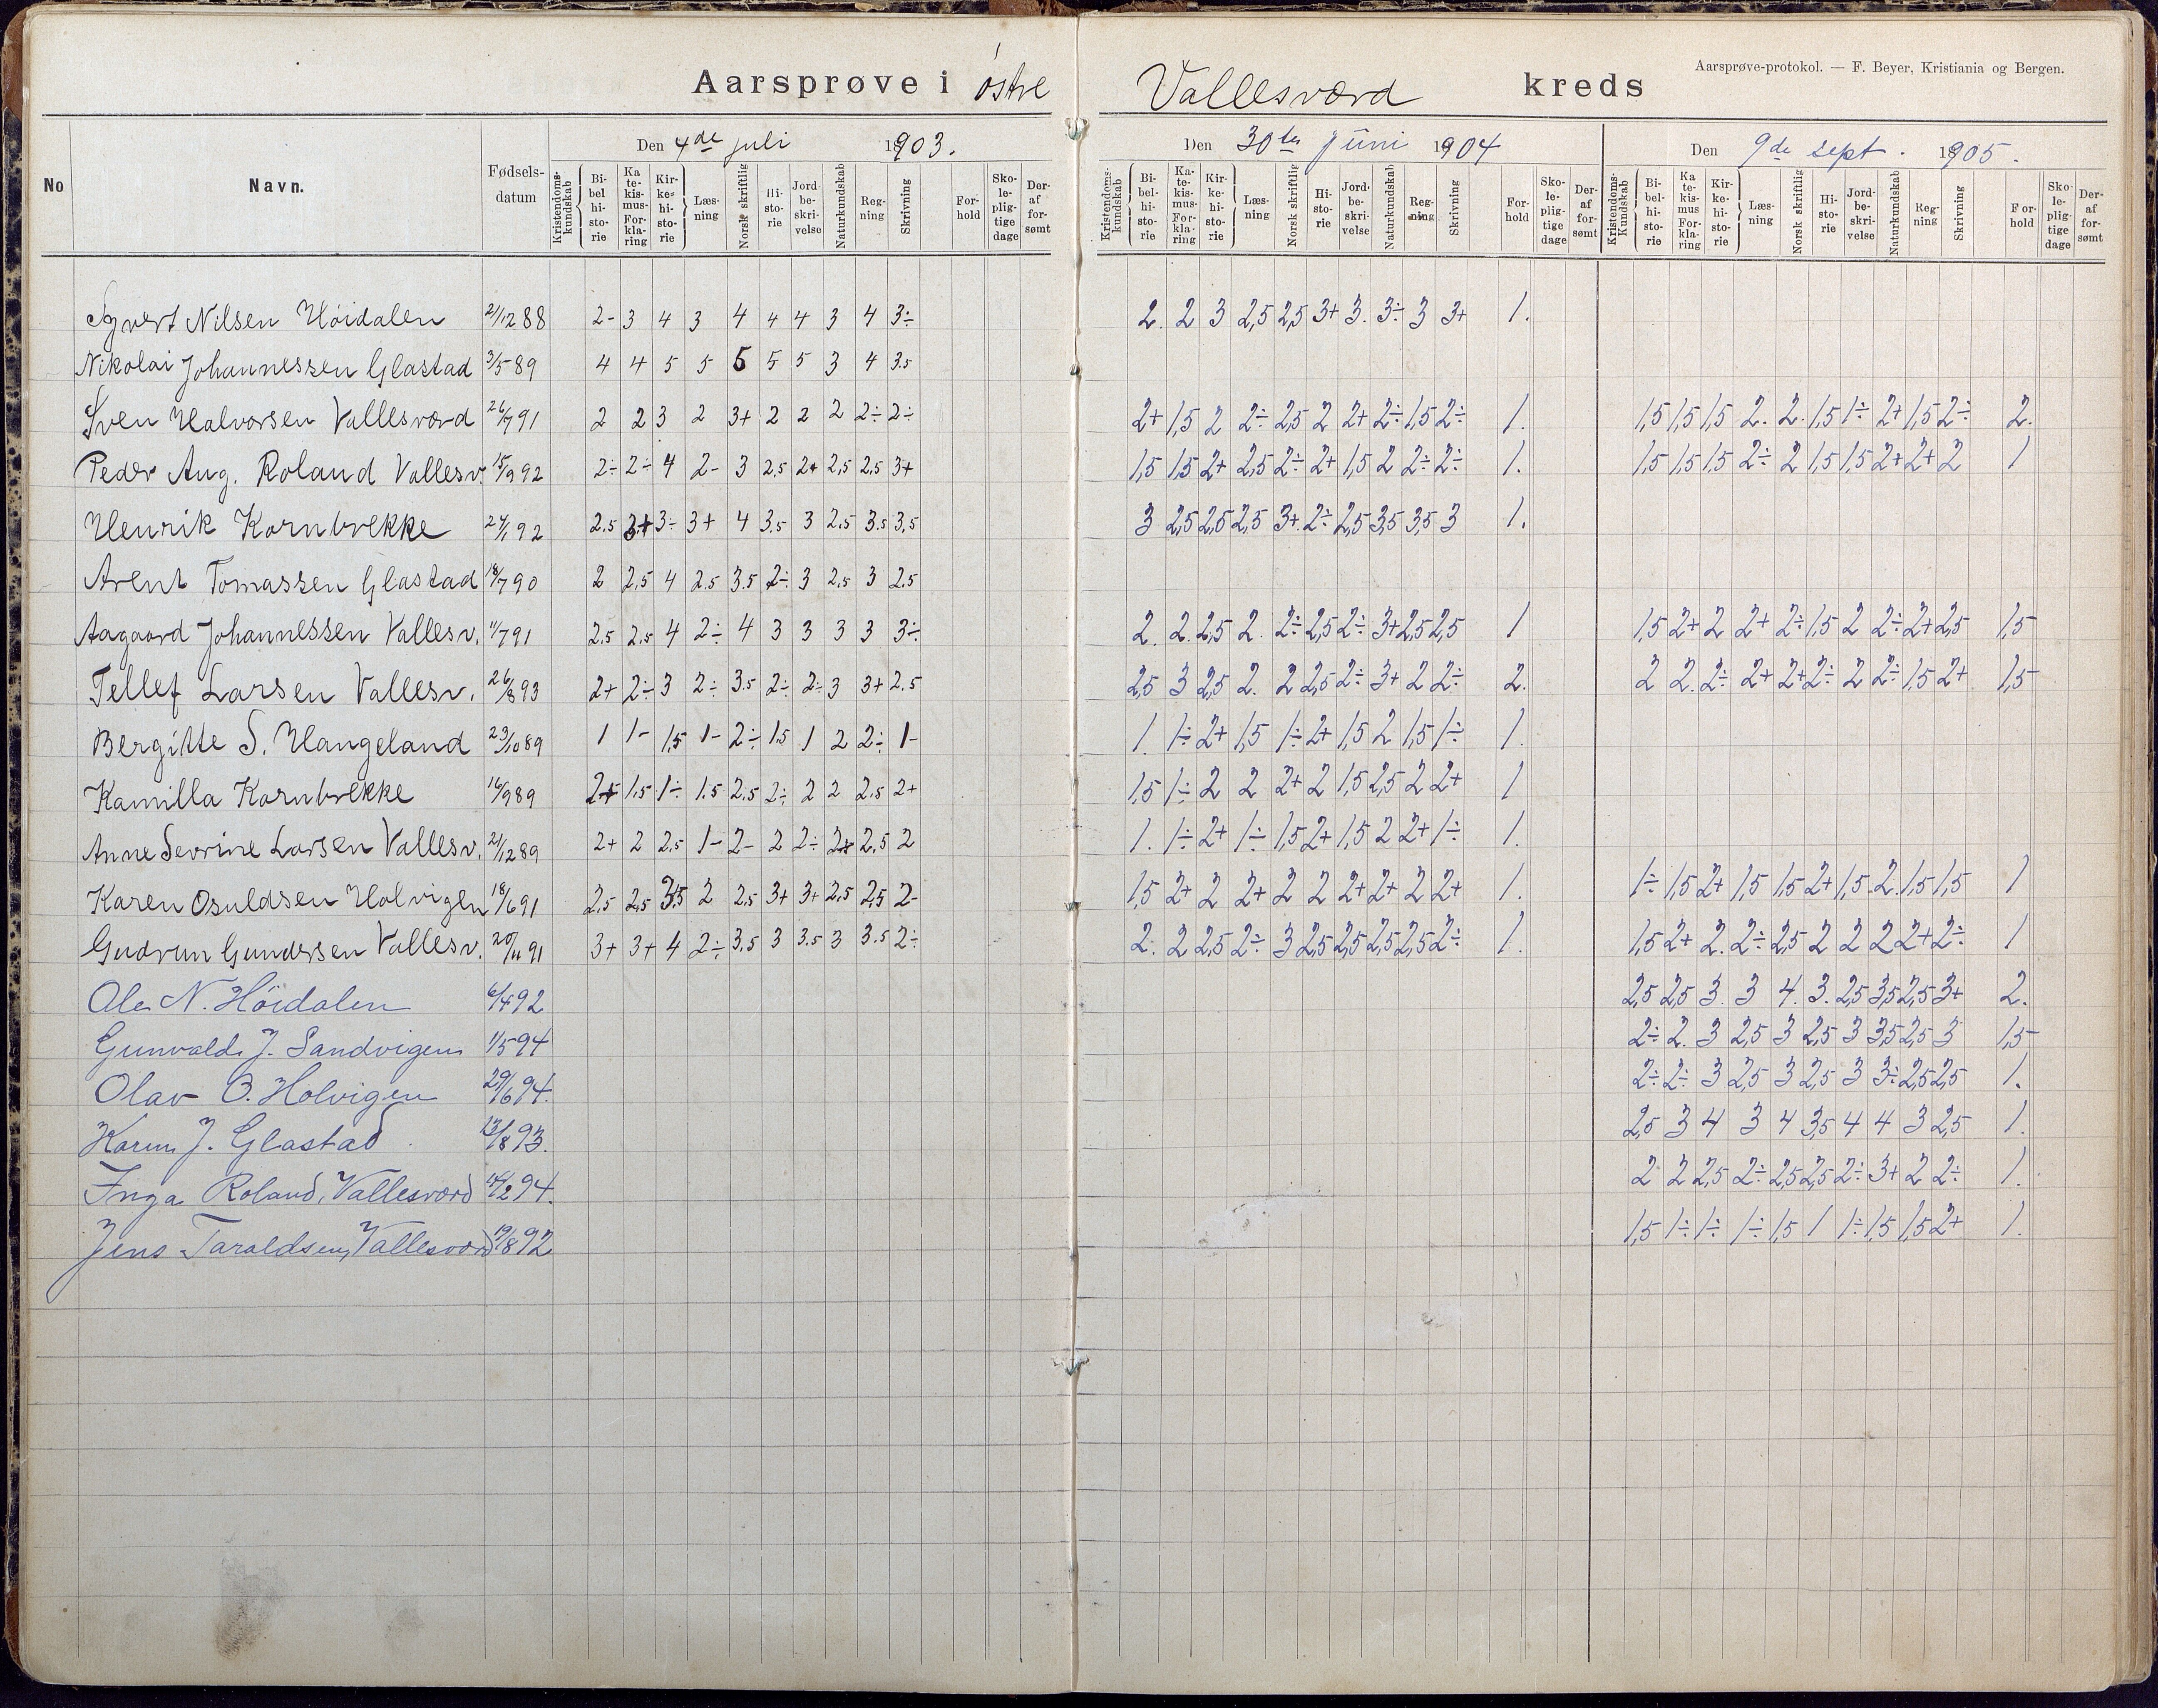 Aarsprøve i østre Vallesværd kreds
Aarsprøve-protokol. — F. Beyer, Kristiania og Bergen.
No Navn. Fødselsdatum Den 4de juli 1903. Den 30te juni 1904 Den 9de sept. 1905.
Kristendomskundskab Bibelhistorie Katekismus-Forklaring Kirkehistorie Læsning Norsk skriftlig Historie Jordbeskrivelse Naturkundskab Regning Skrivning Forhold Skolepligtige dage Deraf forsømt
Kristendomskundskab Bibelhistorie Katekismus-Forklaring Kirkehistorie Læsning Norsk skriftlig Historie Jordbeskrivelse Naturkundskab Regning Skrivning Forhold Skolepligtige dage Deraf forsømt
Kristendoms-Kundskab Bibelhistorie Katekismus Forklaring Kirkehistorie Læsning Norsk skriftlig Historie Jordbeskrivelse Naturkundskab Regning Skrivning Forhold Skolepligtige dage Deraf forsømt
Nilsen Høidalen 21/12 88 2- 3 4 3 4 4 4 3 4 3÷ 2. 2 3 2,5 2,5 3+ 3. 3÷ 3 3+ 1.
Nikolai Johannessen Glastad 3/5 89 4 4 5 5 5 5 5 3 4 3.5
Sven Halvorsen Vallesværd 26/7 91 2 2 3 2 3+ 2 2 2 2÷ 2÷ 2+ 1,5 2 2÷ 2,5 2 2+ 2÷ 1,5 2÷ 1. 1,5 1,5 1,5 2. 2. 1,5 1÷ 2+ 1,5 2÷ 2.
Peder Aug. Roland Vallesv. 15/9 92 2÷ 2÷ 4 2- 3 2,5 2+ 2,5 2,5 3+ 1,5 1,5 2+ 2,5 2÷ 2+ 1,5 2 2÷ 2÷ 1. 1,5 1,5 1,5 2÷ 2 1,5 1,5 2+ 2+ 2 1
Henrik Kornbrekke 24/1 92 2.5 3+ 3÷ 3+ 4 3.5 3 2.5 3.5 3.5 3 2,5 2,5 2,5 3+. 2÷ 2,5 3,5 3,5 3 1.
Arent Tomassen Glastad 18/7 90 2 2.5 4 2.5 3.5 2÷ 3 2.5 3 2.5
Aagaard Johannessen Vallesv. 11/7 91 2.5 2.5 4 2÷ 4 3 3 3 3 3÷ 2. 2. 2,5 2. 2÷ 2,5 2÷ 3+ 2,5 2,5 1 1,5 2+ 2 2+ 2÷ 1,5 2 2÷ 2+ 2,5 1,5
Tellef Larsen Vallesv. 26/8 93 2+ 2÷ 3 2÷ 3.5 2÷ 2÷ 3 3+ 2.5 2,5 3 2,5 2. 2 2,5 2÷ 3+ 2 2÷ 2. 2 2. 2÷ 2+ 2+ 2÷ 2 2÷ 1,5 2+ 1,5
Bergitte S. Hangeland 23/10 89 1 1- 1,5 1- 2÷ 1.5 1 2 2÷ 1- 1. 1÷ 2+ 1,5 1÷ 2+ 1,5 2 1,5 1÷ 1.
Kamilla Kornbrekke 16/9 89 2+ 1.5 1÷ 1.5 2.5 2÷ 2 2 2.5 2+ 1,5 1÷ 2 2 2+ 2 1,5 2,5 2 2+ 1
Anne Sevrine Larsen Vallesv. 21/12 89 2+ 2 2.5 1- 2- 2 2÷ 2+ 2.5 2 1. 1÷ 2+ 1÷ 1,5 2+ 1,5 2 2+ 1÷ 1.
Karen Osuldsen Holvigen 18/6 91 2.5 2.5 3.5 2 2.5 3+ 3+ 2.5 2.5 2- 1,5 2+ 2 2+ 2 2 2+ 2+ 2 2+ 1. 1÷ 1,5 2+ 1,5 1,5 2+ 1,5 2. 1,5 1,5 1
Gudrun Gundersen Vallesv. 20/11 91 3+ 3+ 4 2÷ 3.5 3 3.5 3 3.5 2÷ 2. 2 2,5 2÷ 3 2,5 2,5 2,5 2,5 2÷ 1. 1,5 2+ 2. 2÷ 2,5 2 2 2 2+ 2÷ 1
Ole N. Höidalen 6/4 92 2,5 2,5 3. 3 4. 3. 2,5 3,5 2,5 3+ 2.
Gunvald J. Sandvigen 1/5 94 2÷ 2. 3 2,5 3 2,5 3 3,5 2,5 3 1,5
Olav O. Holvigen 29/6 94. 2÷ 2÷ 3 2,5 3 2,5 3 3÷ 2,5 2,5 1.
Karen J. Glastad 13/8 93. 2,5 3 4 3 4 3,5 4 4 3 2,5 1.
Inga Roland, Vallesværd /2 94. 2 2 2,5 2÷ 2,5 2,5 2÷ 3+ 2 2÷ 1.
Jens Taraldsen, Vallesværd 19/8 92 1,5 1÷ 1÷ 1÷ 1,5 1 1÷ 1,5 1,5 2+ 1.